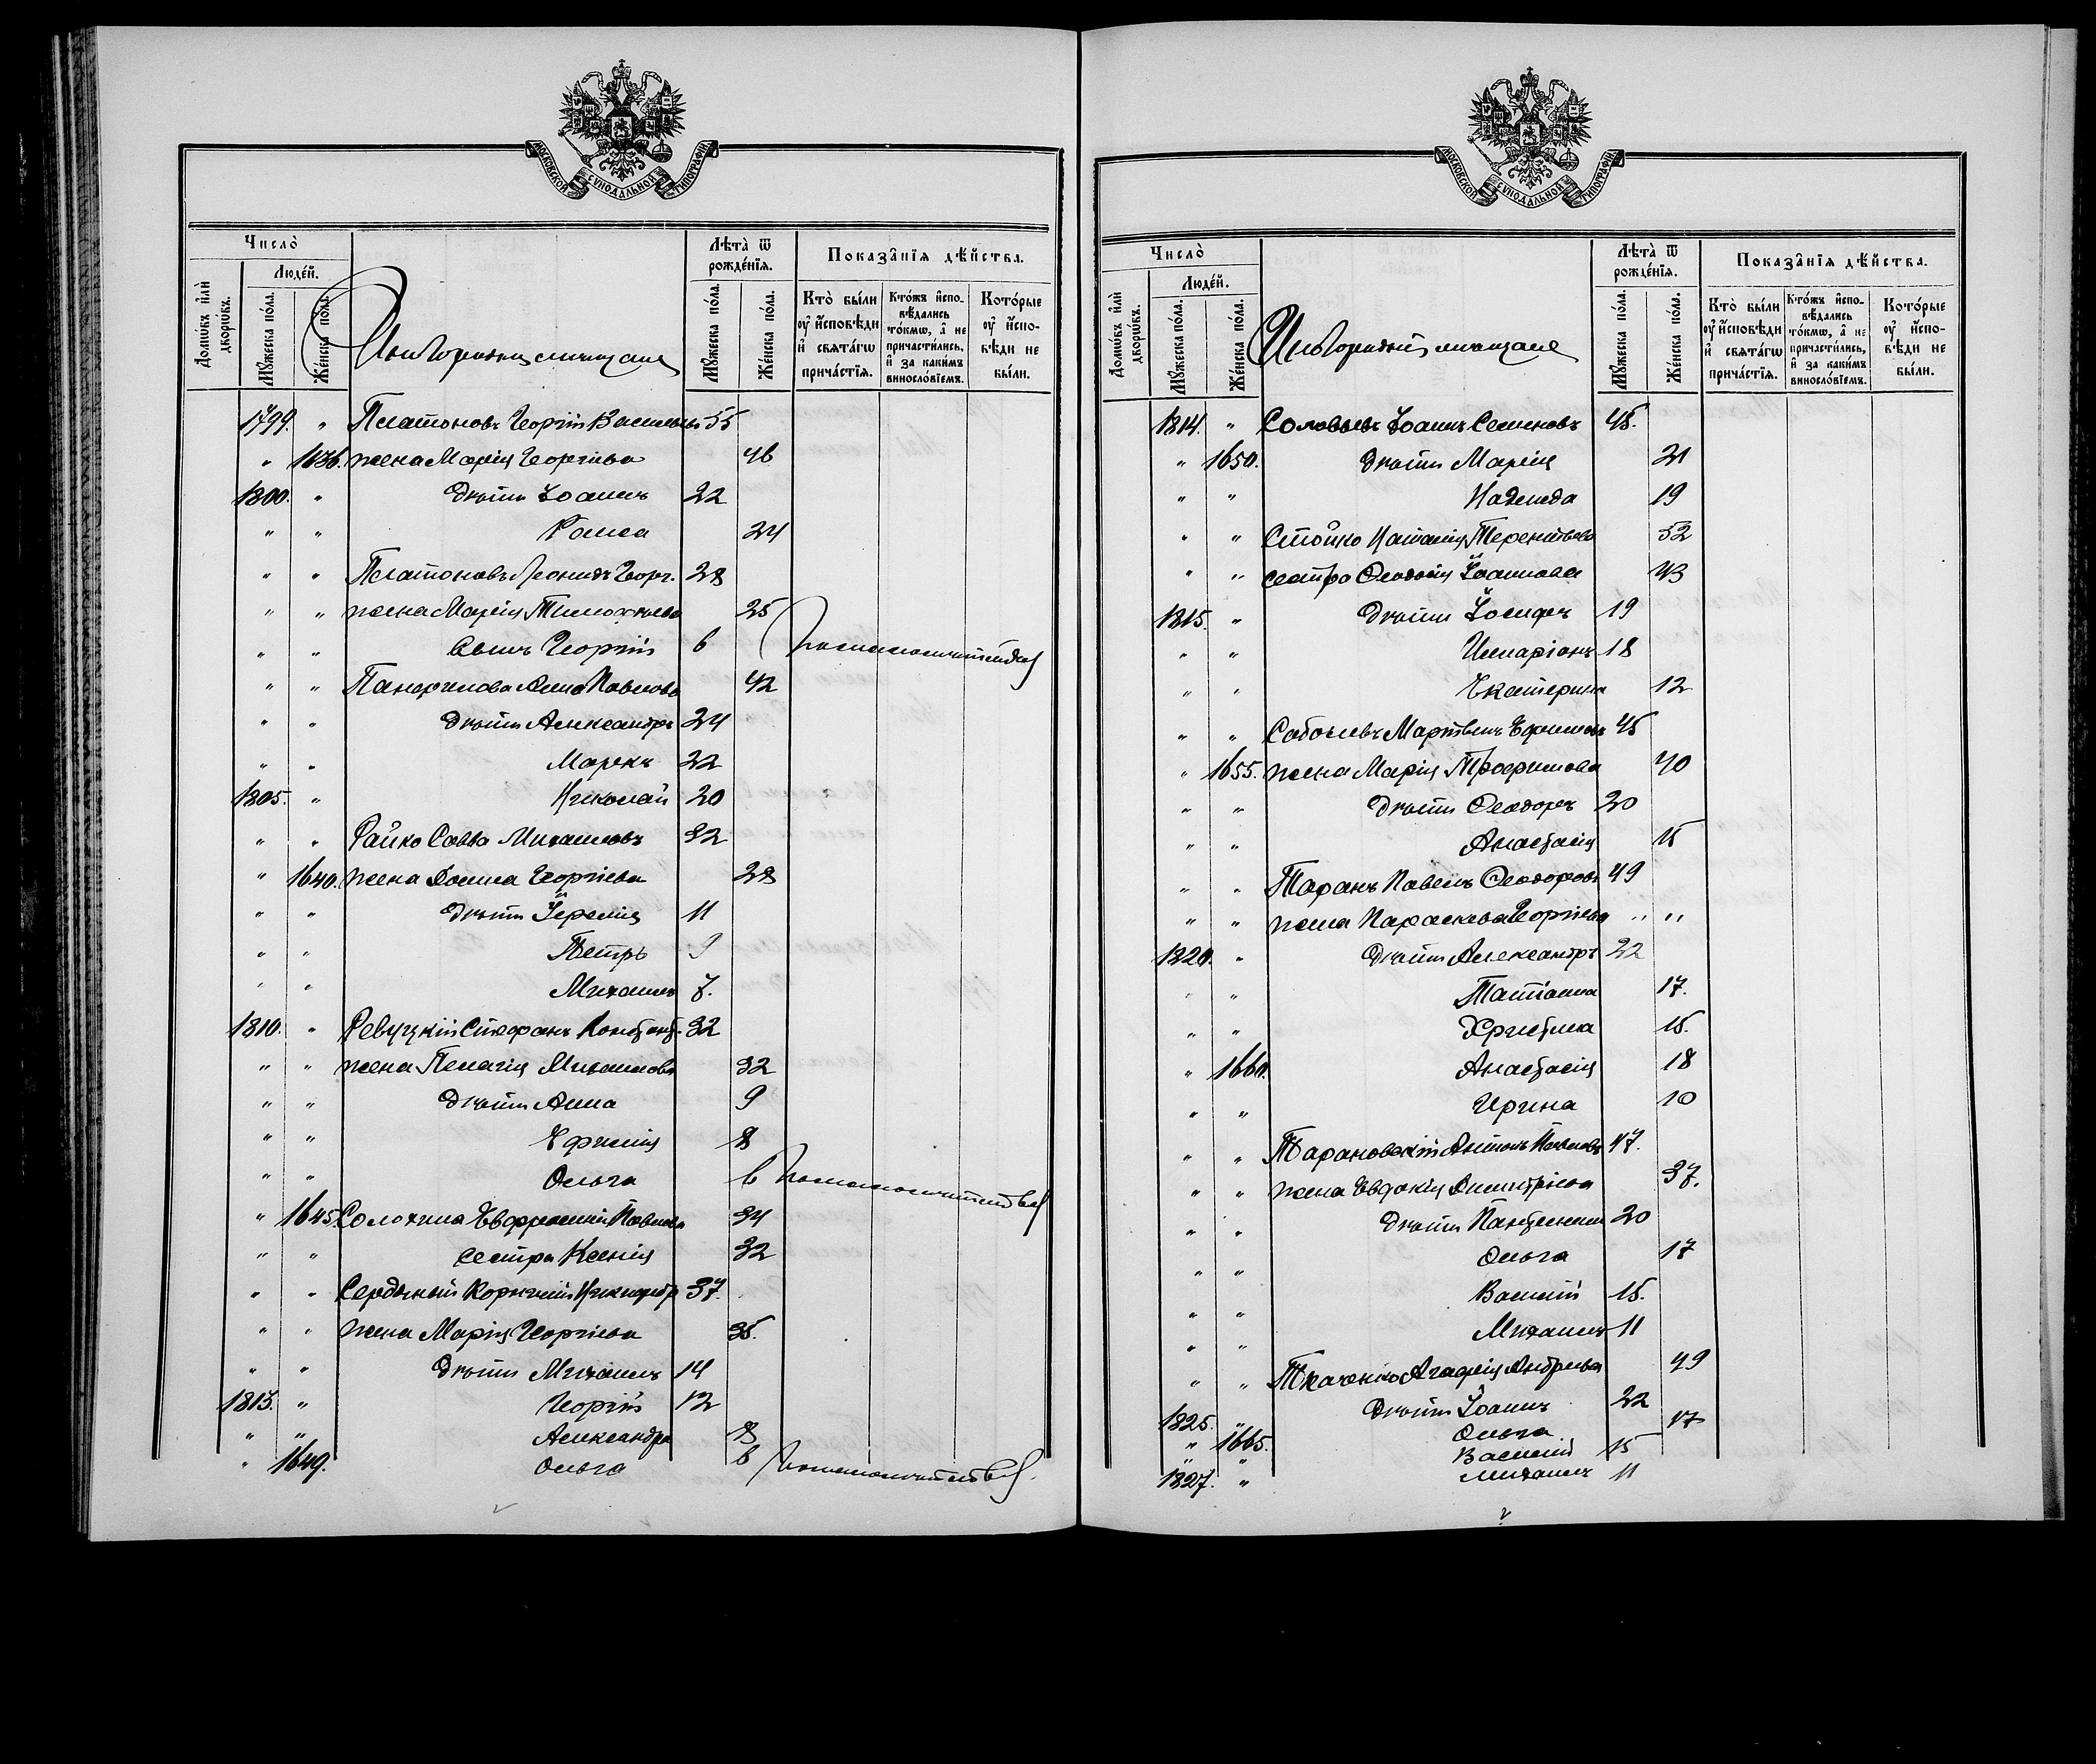 МОСКОВСКОЙ СѴНОДАЛЬНОЙ ТИПОГРАФІИ
Число̀
Людéй.
Домѡ́въ и҆лѝ дворѡ́въ.
Мꙋ́жеска по́ла.
Же́нска по́ла.
Иногородніи мѣщане
Лѣта̀ ѿ рожде́нїѧ.
Мꙋ́жеска по́ла.
Же́нска по́ла.
Показа̑нїѧ дѣ́йства.
Кто̀ бы́ли ᲂу҆ и҆́сповѣди и҆ свѧта́гѡ прича́стїѧ.
Кто́жъ и҆спо­вѣ́дались то́кмѡ, а҆ не причасти́лись, и҆ за каки́мъ виносло́вїемъ.
Кото́рые ᲂу҆ и҆́спо­вѣди не бы́ли.
1799. " Платоновъ Георгій Васильевъ 55
" 1636. жена Марія Георгіева 46
1800. " дѣти Іоаннъ 22
" " Раиса 24
" " Платоновъ Леонидъ Георг. 28
" " жена Марія Тимофеева 25
" " Сынъ Георгій 6
" " Анна Павлова 42
" " дѣти Александръ 24
" " Маркъ 22
1805. " Николай 20
" " Райко Савва Михаиловъ 32
" 1640. жена Домна Георгіева 28
" " дѣти Іеремія 11
" " Петръ 9
" " Михаилъ 7.
1810. " Ревуцкій Стефанъ Констант. 32
" " жена Пелагія Михаилова 32
" " дѣти Анна 9
" " Ефимія 8
" " Ольга 6
" 1645. Солохина Евфросинія Павлова 34
" " сестра Ксенія 32
" " Корнилій 37.
" " жена Марія Георгіева 35.
" " дѣти Михаилъ 14
1813. " Георгій 12
" " Александра 8
" 1649. Ольга 6
МОСКОВСКОЙ СѴНОДАЛЬНОЙ ТИПОГРАФІИ
Число̀
Людéй.
Домѡ́въ и҆лѝ дворѡ́въ.
Мꙋ́жеска по́ла.
Же́нска по́ла.
Иногородніи мѣщане
Лѣта̀ ѿ рожде́нїѧ.
Мꙋ́жеска по́ла.
Же́нска по́ла.
Показа̑нїѧ дѣ́йства.
Кто̀ бы́ли ᲂу҆ и҆́сповѣди и҆ свѧта́гѡ прича́стїѧ.
Кто́жъ и҆спо­вѣ́дались то́кмѡ, а҆ не причасти́лись, и҆ за каки́мъ виносло́вїемъ.
Кото́рые ᲂу҆ и҆́спо­вѣди не бы́ли.
1814. " Соловьевъ Іоаннъ Семеновъ 45.
" 1650. дѣти Марія 21
" " Надежда 19
" " Стойко Наталія Терентьева 52
" " сестра Ѳеодосія Іоаннова 43
1815. " дѣти Іосифъ 19
" " Иларіонъ 18
" " Екатерина 12
" " Соболевъ Ефимовъ 45
" 1655. жена Марія Трофимова 40
" " дѣти Ѳеодоръ 20
" " Анастасія 15
" " Таранъ Павелъ Ѳеодоровъ 49
" " жена Параскева Георгіева " "
1820. " дѣти Александръ 22
" " Татіана 17.
" " Христина 15.
" 1660. Анастасія 18
" " Ирина 10
" " Тарановскій Антонъ Павловъ 47.
" " жена Евдокія Димитріева 37.
" " дѣти 20
" " Ольга 17
" " Василій 15.
" " Михаилъ 11
" " Ткаченко Агафія Андреева 49
1825. " дѣти Іоаннъ 22
" 1665. Ольга 17
" " Василій 15
1827. " Михаилъ 11